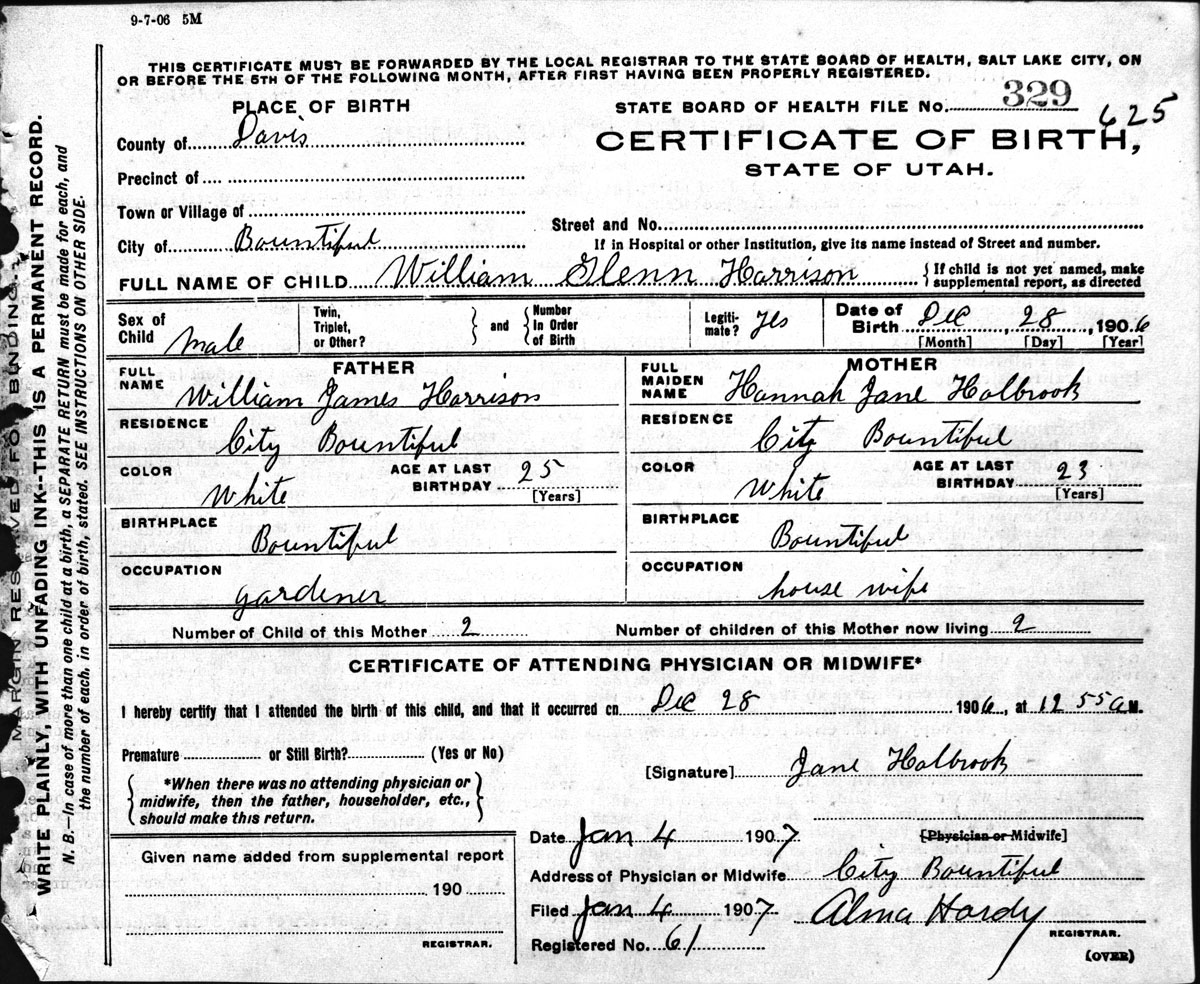 9-7-06 5M
THIS CERTIFICATE MUST BE FORWARDED BY THE LOCAL REGISTRAR TO THE STATE BOARD OF HEALTH, SALT LAKE CITY, ON
OR BEFORE THE 5TH OF THE FOLLOWING MONTH, AFTER FIRST HAVING BEEN PROPERLY REGISTERED.
PLACE OF BIRTH
STATE BOARD OF HEALTH FILE No. 329
625
County of Davis
CERTIFICATE OF BIRTH,
STATE OF UTAH.
Precinct of
Town or Village of
Street and No.
City of Bountiful
If in Hospital or other Institution, give its name instead of Street and number.
FULL NAME OF CHILD William Glenn Harrison { If child is not yet named, make
supplemental report, as directed
Sex of
Child Male
Twin,
Triplet,
or Other?
} and {
Number
In Order
of Birth
Legiti-
mate? Yes
Date of
Birth Dec, 28, 1906
[Month] [Day] [Year]
FATHER
FULL
NAME
William James Harrison
RESIDENCE
City Bountiful
COLOR
White
AGE AT LAST
BIRTHDAY 25
[Years]
BIRTHPLACE
Bountiful
OCCUPATION
gardener
MOTHER
FULL
MAIDEN
NAME
Hannah Jane Holbrook
RESIDENCE
City Bountiful
COLOR
White
AGE AT LAST
BIRTHDAY 23
[Years]
BIRTHPLACE
Bountiful
OCCUPATION
house wife
Number of Child of this Mother 2
Number of children of this Mother now living 2
CERTIFICATE OF ATTENDING PHYSICIAN OR MIDWIFE*
I hereby certify that I attended the birth of this child, and that it occurred on Dec 28 1906, at 12 55 a M.
Premature or Still Birth? (Yes or No)
{ *When there was no attending physician or
midwife, then the father, householder, etc.,
should make this return. }
[Signature] Jane Holbrook
Date Jan 4 1907
[Physician or Midwife]
Given name added from supplemental report
190
REGISTRAR.
Address of Physician or Midwife City Bountiful
Filed Jan 4 1907 Alma Hardy
REGISTRAR.
Registered No. 61
(OVER)
MARGIN RESERVED FOR BINDING.
WRITE PLAINLY, WITH UNFADING INK--THIS IS A PERMANENT RECORD.
N. B.—In case of more than one child at a birth, a SEPARATE RETURN must be made for each, and
the number of each, in order of birth, stated. SEE INSTRUCTIONS ON OTHER SIDE.